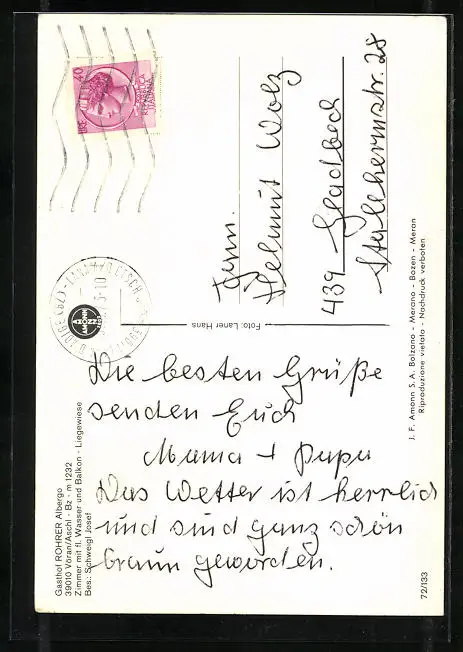 Gasthof ROHRER Albergo
39010 Vöran/Aschl - Bz - m 1232
Zimmer mit fl. Wasser und Balkon - Liegewiese
Bes.: Schweigl Josef
Die besten Grüße
senden Euch
Mama + Papa
Das Wetter ist herrlich
und sind ganz schön
braun geworden.
Foto: Laner Hans
J. F. Amonn S. A. Bolzano - Merano - Bozen - Meran
Riproduzione vietata - Nachdruck verboten
72/133
LIRE 40
REPUBBLICA
ITALIANA
AMONN
BOZZEN
Fam.
Helmut Wolz
439 Gladbeck
Styllehermstr. 28